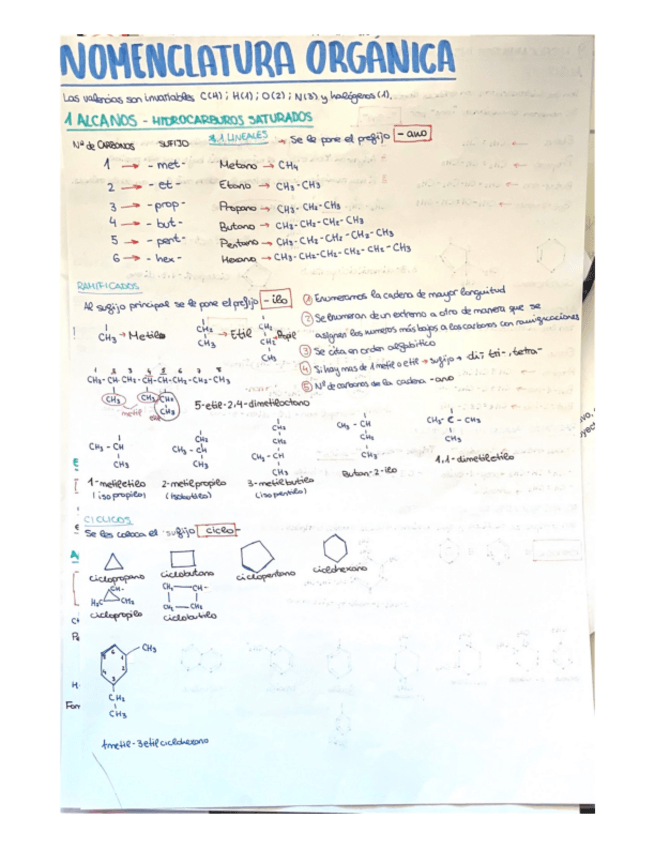 NOMENCLATURA ORGÁNICA
Las valencias son invariables C(4); H(1); O(2); N(3) y halógenos (1).
1 ALCANOS - HIDROCARBUROS SATURADOS
Nº de CARBONOS SUFIJO 1.1 LINEALES → Se le pone el prefijo -ano
1 → -met- Metano → CH4
2 → -et- Etano → CH3-CH3
3 → -prop- Propano → CH3-CH2-CH3
4 → -but- Butano → CH3-CH2-CH2-CH3
5 → -pent- Pentano → CH3-CH2-CH2-CH2-CH3
6 → -hex- Hexano → CH3-CH2-CH2-CH2-CH2-CH3
RAMIFICADOS
Al sufijo principal se le pone el prefijo -ilo
① Enumeramos la cadena de mayor longuitud
② Se enumeran de un extremo a otro de manera que se
asignen los numeros más bajos a los carbonos con ramificaciones
③ Se cita en orden alfabético
④ Si hay mas de 1 metil o etil → sufijo → di-; tri-, tetra-
⑤ Nº de carbonos de la cadena -ano
CH3 → Metilo
CH2
CH3
→ Etil
CH2
CH2
CH3
→ Propil
1 2 3 4 5 6 7 8
CH3-CH-CH2-CH-CH-CH2-CH2-CH3
CH3 CH3 CH2
CH3
metil etil
5-etil-2,4-dimetiloctano
CH3-CH
CH3
1-metiletilo
(isopropilo)
CH2
CH3-CH
CH3
2-metilpropilo
(isobutilo)
CH2
CH2
CH3-CH
CH3
3-metilbutilo
(isopentilo)
CH3-CH
CH2
CH3
Butan-2-ilo
CH3-C-CH3
CH3
1,1-dimetiletilo
CICLICOS
Se les coloca el sufijo ciclo-
ciclopropano ciclobutano ciclopentano ciclohexano
CH-
H2C CH2
ciclopropilo
CH2 CH-
CH2 CH2
ciclobutilo
CH3
6 1 2 3 4
CH2
CH3
1metil-3etilciclohexano